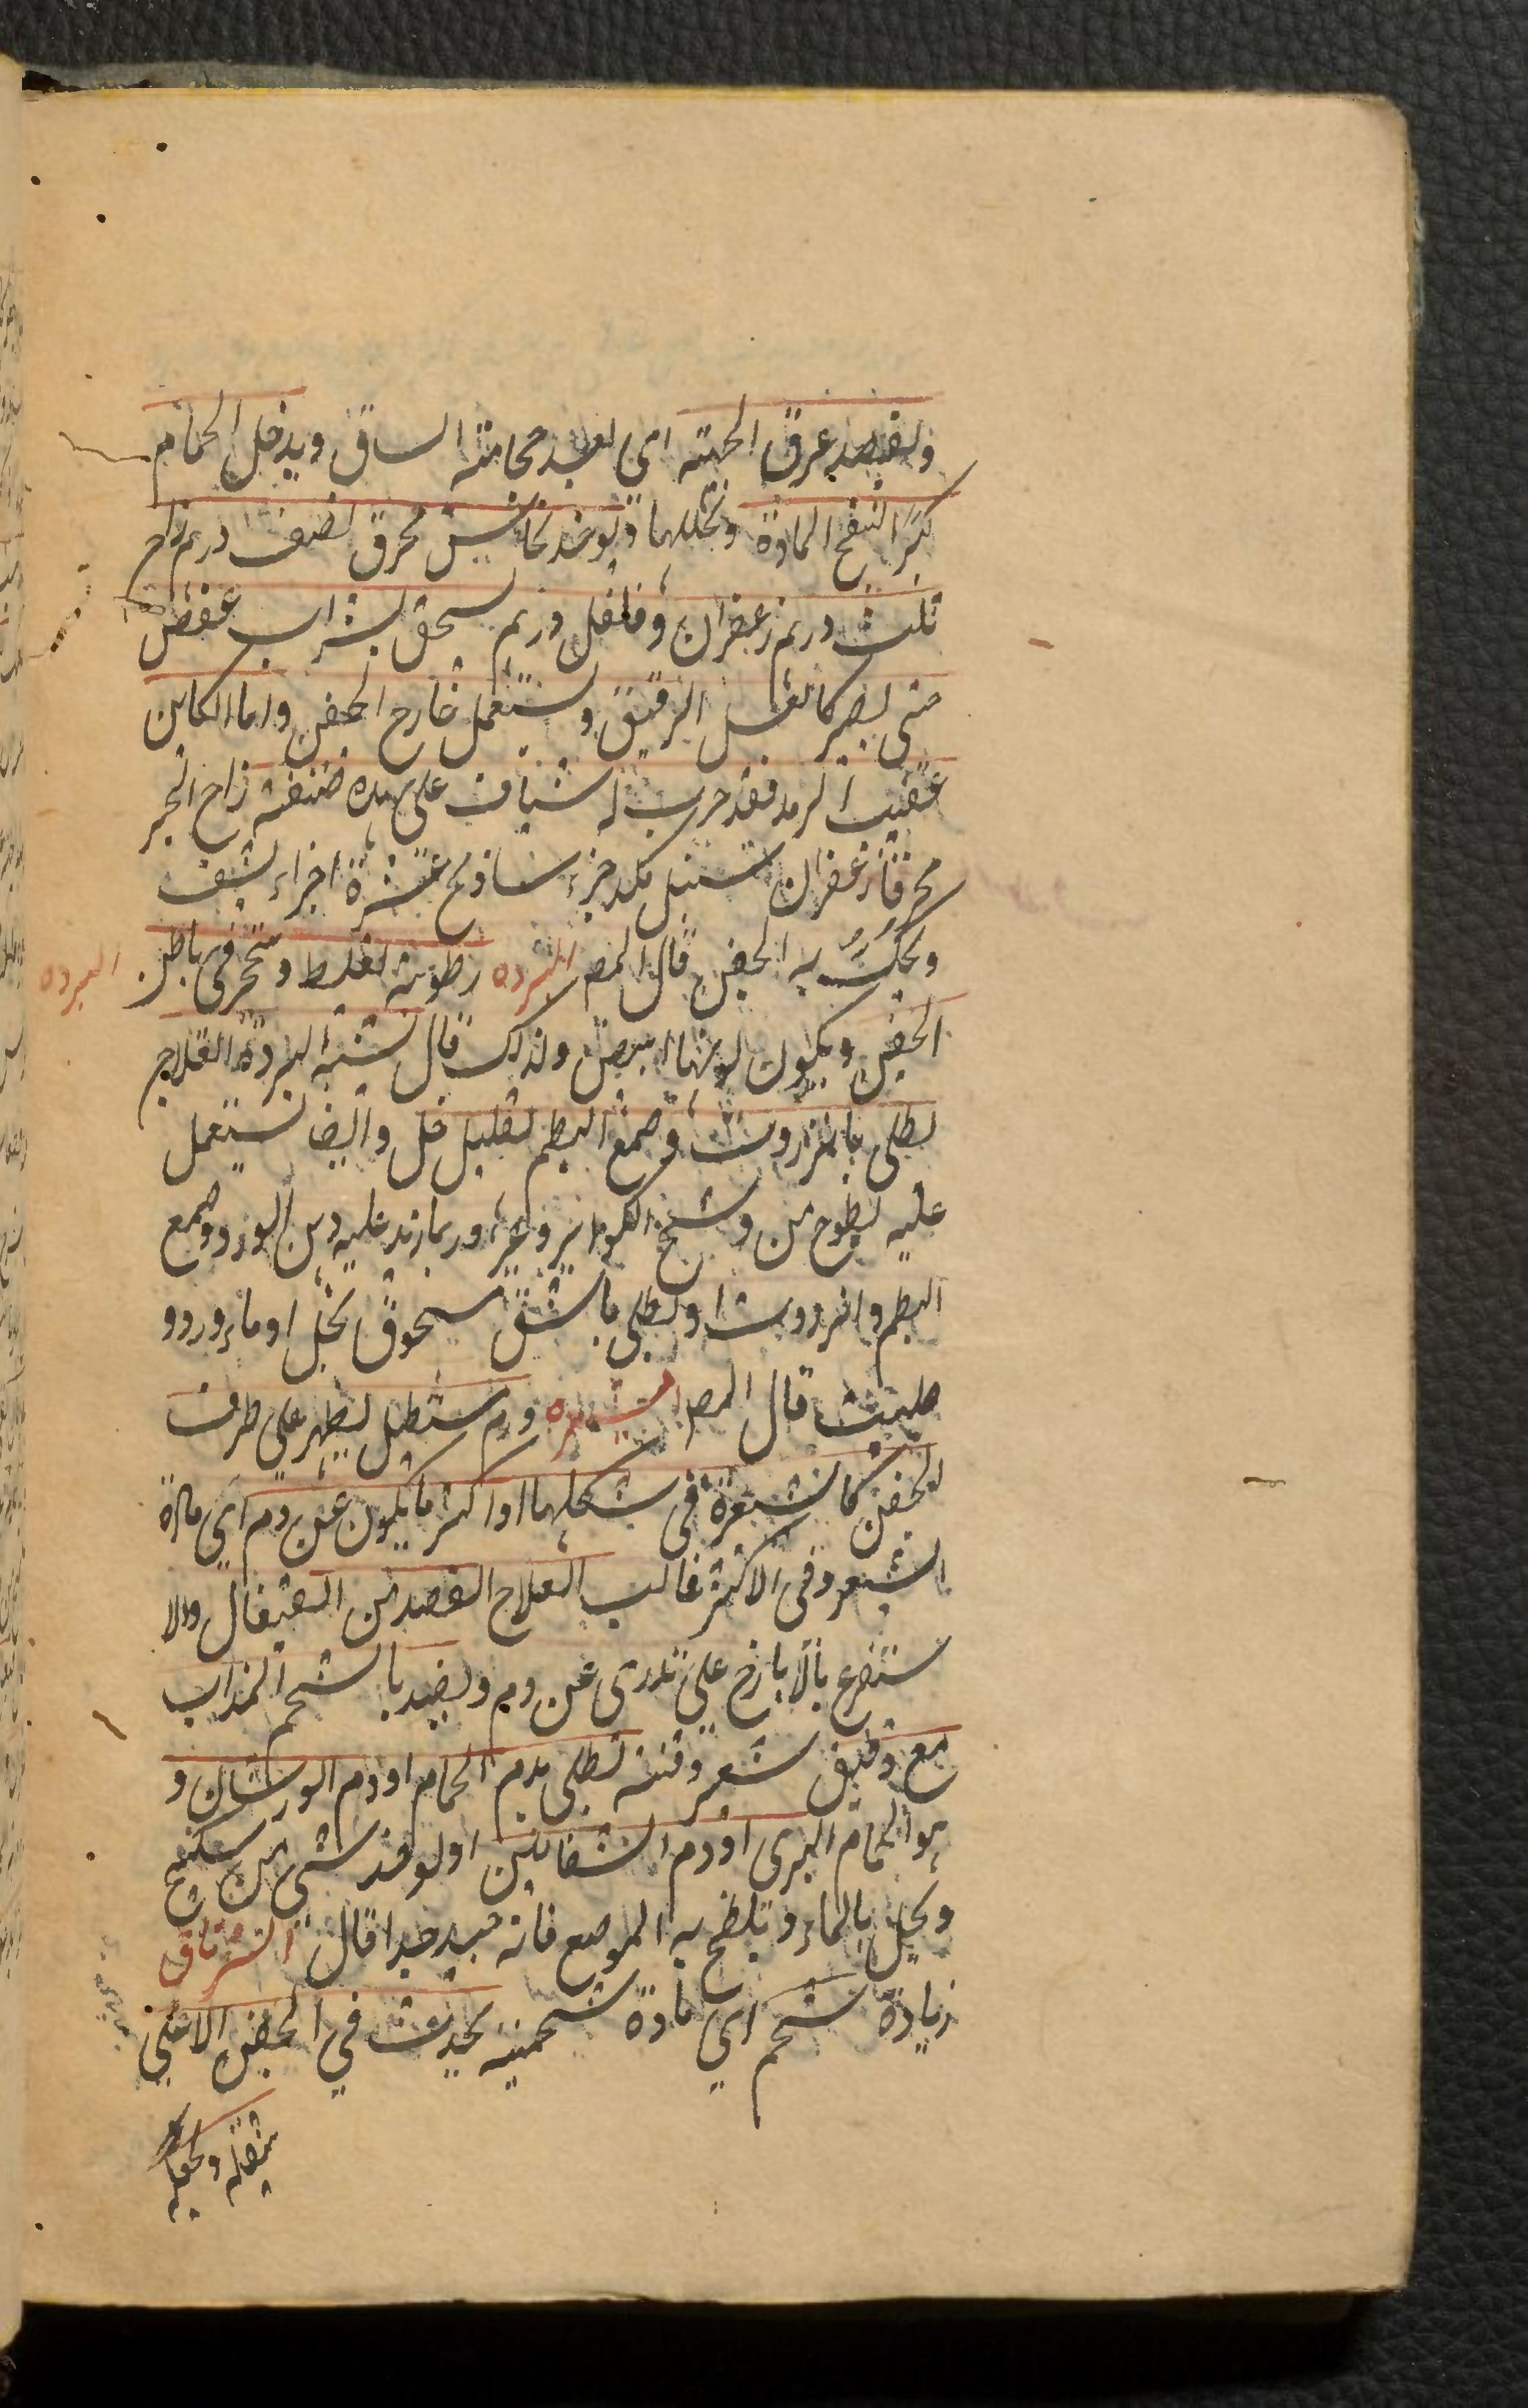 ويفصد عرق الجبهة اى بعد حجامة الساق ويدخل الحمام
كثيرا لتنفتح المادة وتحللها ويوخذ نحاس محرق نصف درهم زاج
ثلث درهم زعفران وفلفل درهم يسحق بشراب عفص
حتى يصير كالعسل الرقيق ويستعمل خارج الجفن واما الكاين
عقيب الرمد فقد جرب له شياف على هذه صنفته زاج الحبر
محرقا زعفران سنبل مكد جزء ساذنج عشرة اجزاء يشيف
ويحك به الجفن قال المص البرده رطوبة تغلظ وتتحجر فى باطن
البرده
الجفن ويكون لونها ابيض ولذلك قال تشبه البردة العلاج
يطلى بانزروت وصمغ البطم بقليل خل وايضا يستعمل
عليه لطوخ من وسخ الكواير وغيره وربما زيد عليه دهن الورد وصمغ
البطم وانزروت او يطلى باشق مسحوق بخل او ماء ورد و
حلتيت قال المص الشعيره ورم مستطيل يظهر على طرف
الجفن كالشعيرة فى شكلها او اكثر ما يكون عن دم اي مادة
الشعير وفى الاكثر غالب العلاج الفصد من القيفال والا
ستفرغ بالايارج على تدرى عن دم ويضمد بالشحم المذاب
مع دقيق شعير وقنه تطلى بدم الحمام او دم الورشان و
هو الحمام البرى او دم الشفانين او لوخذ شىء من سكبينج
ويحل بالماء ويلطخ به الموضع فانه جيد جدا قال الشرناق
زيادة شحم اي مادة شحمية يحدث في الجفن الاعلى